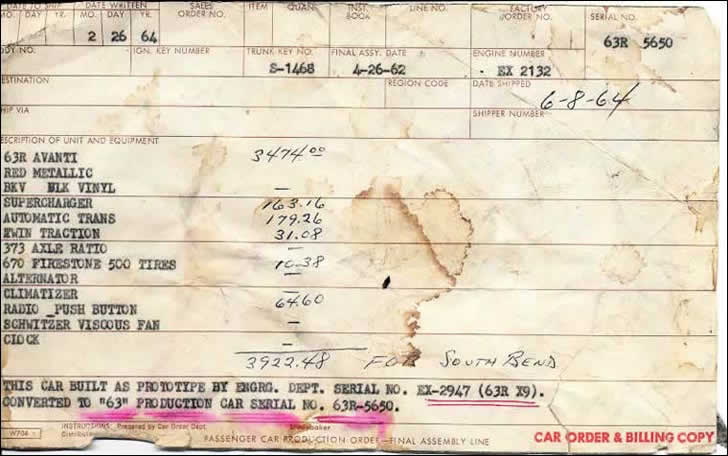 DATE TO SHIP DATE WRITTEN SALES ORDER NO. ITEM QUAN. INST. BOOK LINE NO. FACTORY ORDER NO. SERIAL NO.
MO. DAY YR. MO. DAY YR.
2 26 64 63R 5650
BODY NO. IGN. KEY NUMBER TRUNK KEY NO. FINAL ASSY. DATE ENGINE NUMBER
S-1468 4-26-62 EX 2132
DESTINATION REGION CODE DATE SHIPPED
6-8-64
SHIP VIA SHIPPER NUMBER
DESCRIPTION OF UNIT AND EQUIPMENT
63R AVANTI 3474.00
RED METALLIC
BKV BLK VINYL —
SUPERCHARGER 163.16
AUTOMATIC TRANS 179.26
TWIN TRACTION 31.08
373 AXLE RATIO —
670 FIRESTONE 500 TIRES 10.38
ALTERNATOR —
CLIMATIZER —
RADIO _PUSH BUTTON 64.60
SCHWITZER VISCOUS FAN —
CLOCK —
3922.48 FOR SOUTH BEND
THIS CAR BUILT AS PROTOTYPE BY ENGRG. DEPT. SERIAL NO. EX-2947 (63R X9).
CONVERTED TO "63" PRODUCTION CAR SERIAL NO. 63R-5650.
W704 INSTRUCTIONS Prepared by Car Order Dept. Studebaker
PASSENGER CAR PRODUCTION ORDER—FINAL ASSEMBLY LINE CAR ORDER & BILLING COPY